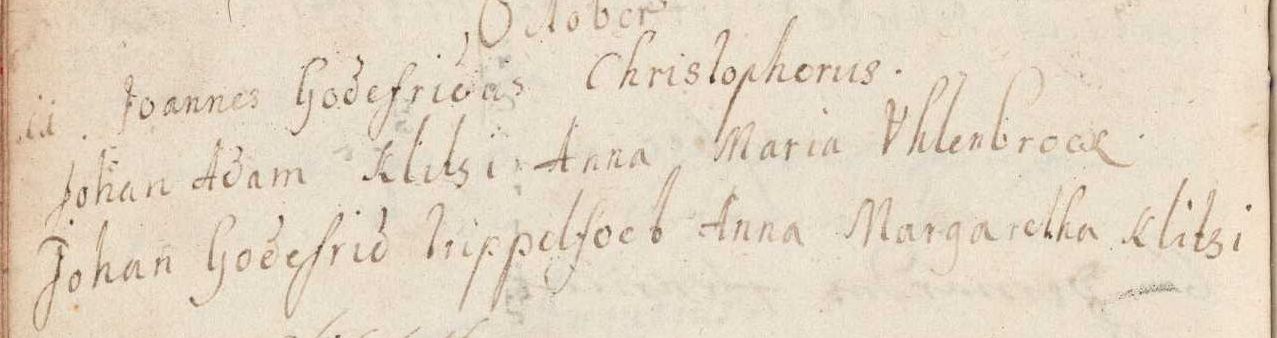 October
11. Joannes Godefridus Christophorus.
Johan Adam Klitsi Anna Maria Uhlenbrock.
Johan Godefrid Anna Margaretha Klitsi